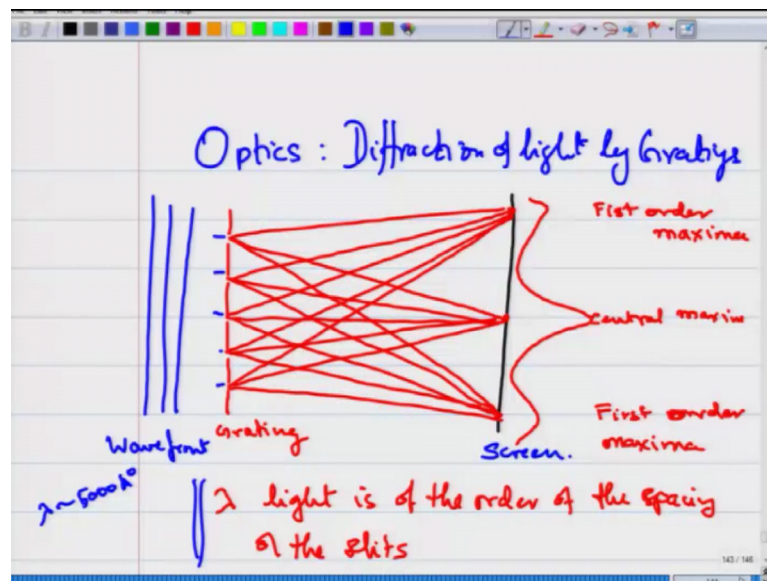 Optics : Diffraction of light by Gratings
Fist order
maxima
central maxim
First order
maxima
Wavefront
Grating
Screen.
λ~5000A°
λ light is of the order of the spacing
of the slits
143 / 146